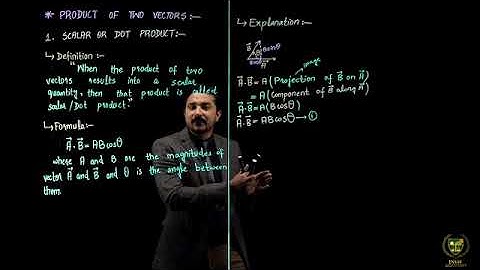 * PRODUCT OF TWO VECTORS:—
1. SCALAR OR DOT PRODUCT:—
↳ Definition:—
"When the product of two
vectors results into a scalar
quantity, then that product is called
scalar/Dot product."
↳ Formula:—
A⃗·B⃗ = ABcosθ
where A and B are the magnitudes of
vector A⃗ and B⃗ and θ is the angle between
them.
↳ Explanation:—
B⃗ Bsinθ
θ
Bcosθ A⃗
image
A⃗·B⃗ = A (Projection of B⃗ on A⃗)
= A (Component of B⃗ along A⃗)
A⃗·B⃗ = A (Bcosθ)
A⃗·B⃗ = ABcosθ → ①